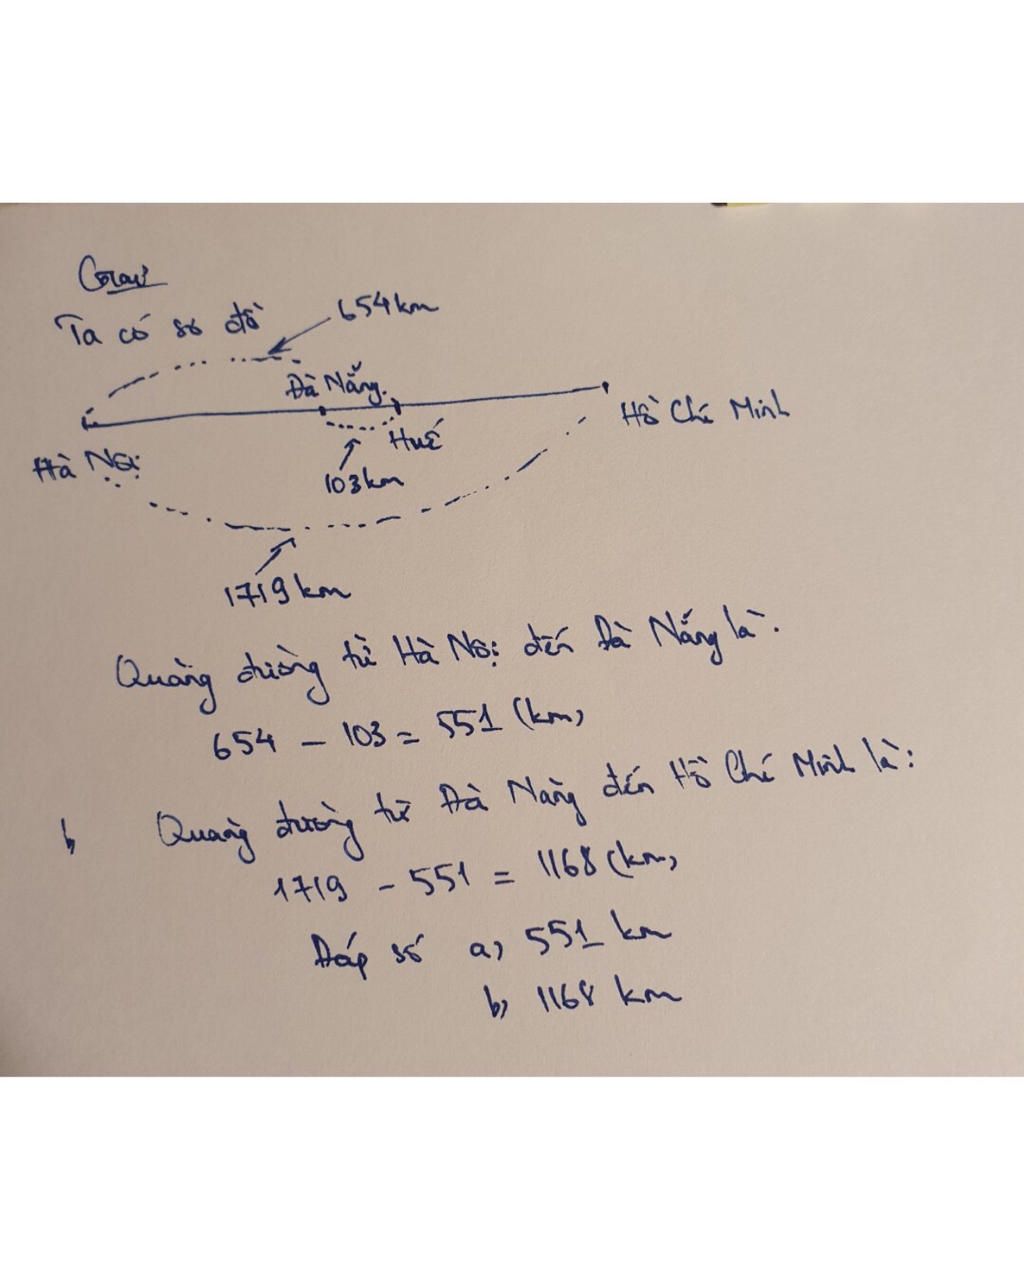 Giải
Ta có sơ đồ
654km
Đà Nẵng.
Hồ Chí Minh
Huế
Hà Nội
103km
1719km
Quãng đường từ Hà Nội đến Đà Nẵng là.
654 - 103 = 551 (km)
b, Quãng đường từ Đà Nẵng đến Hồ Chí Minh là:
1719 - 551 = 1168 (km)
Đáp số a) 551 km
b) 1168 km